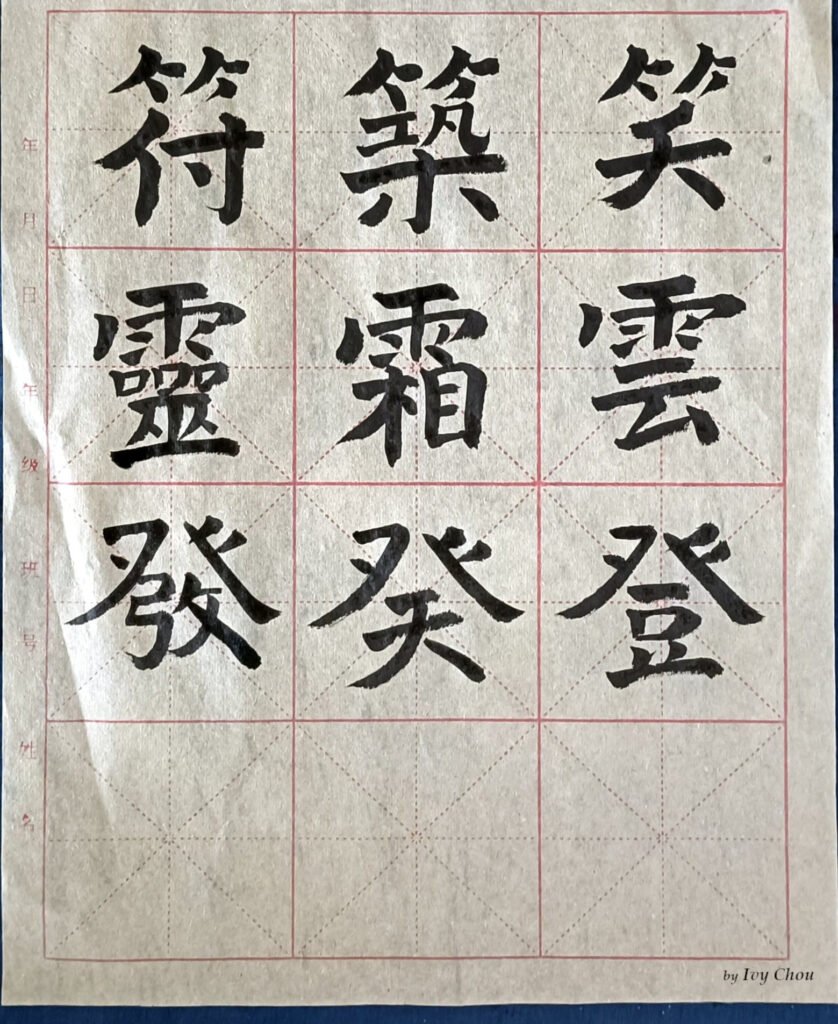 笑築符
雲霜靈
登癸發
年月日
年级
班号
姓名
by Ivy Chou